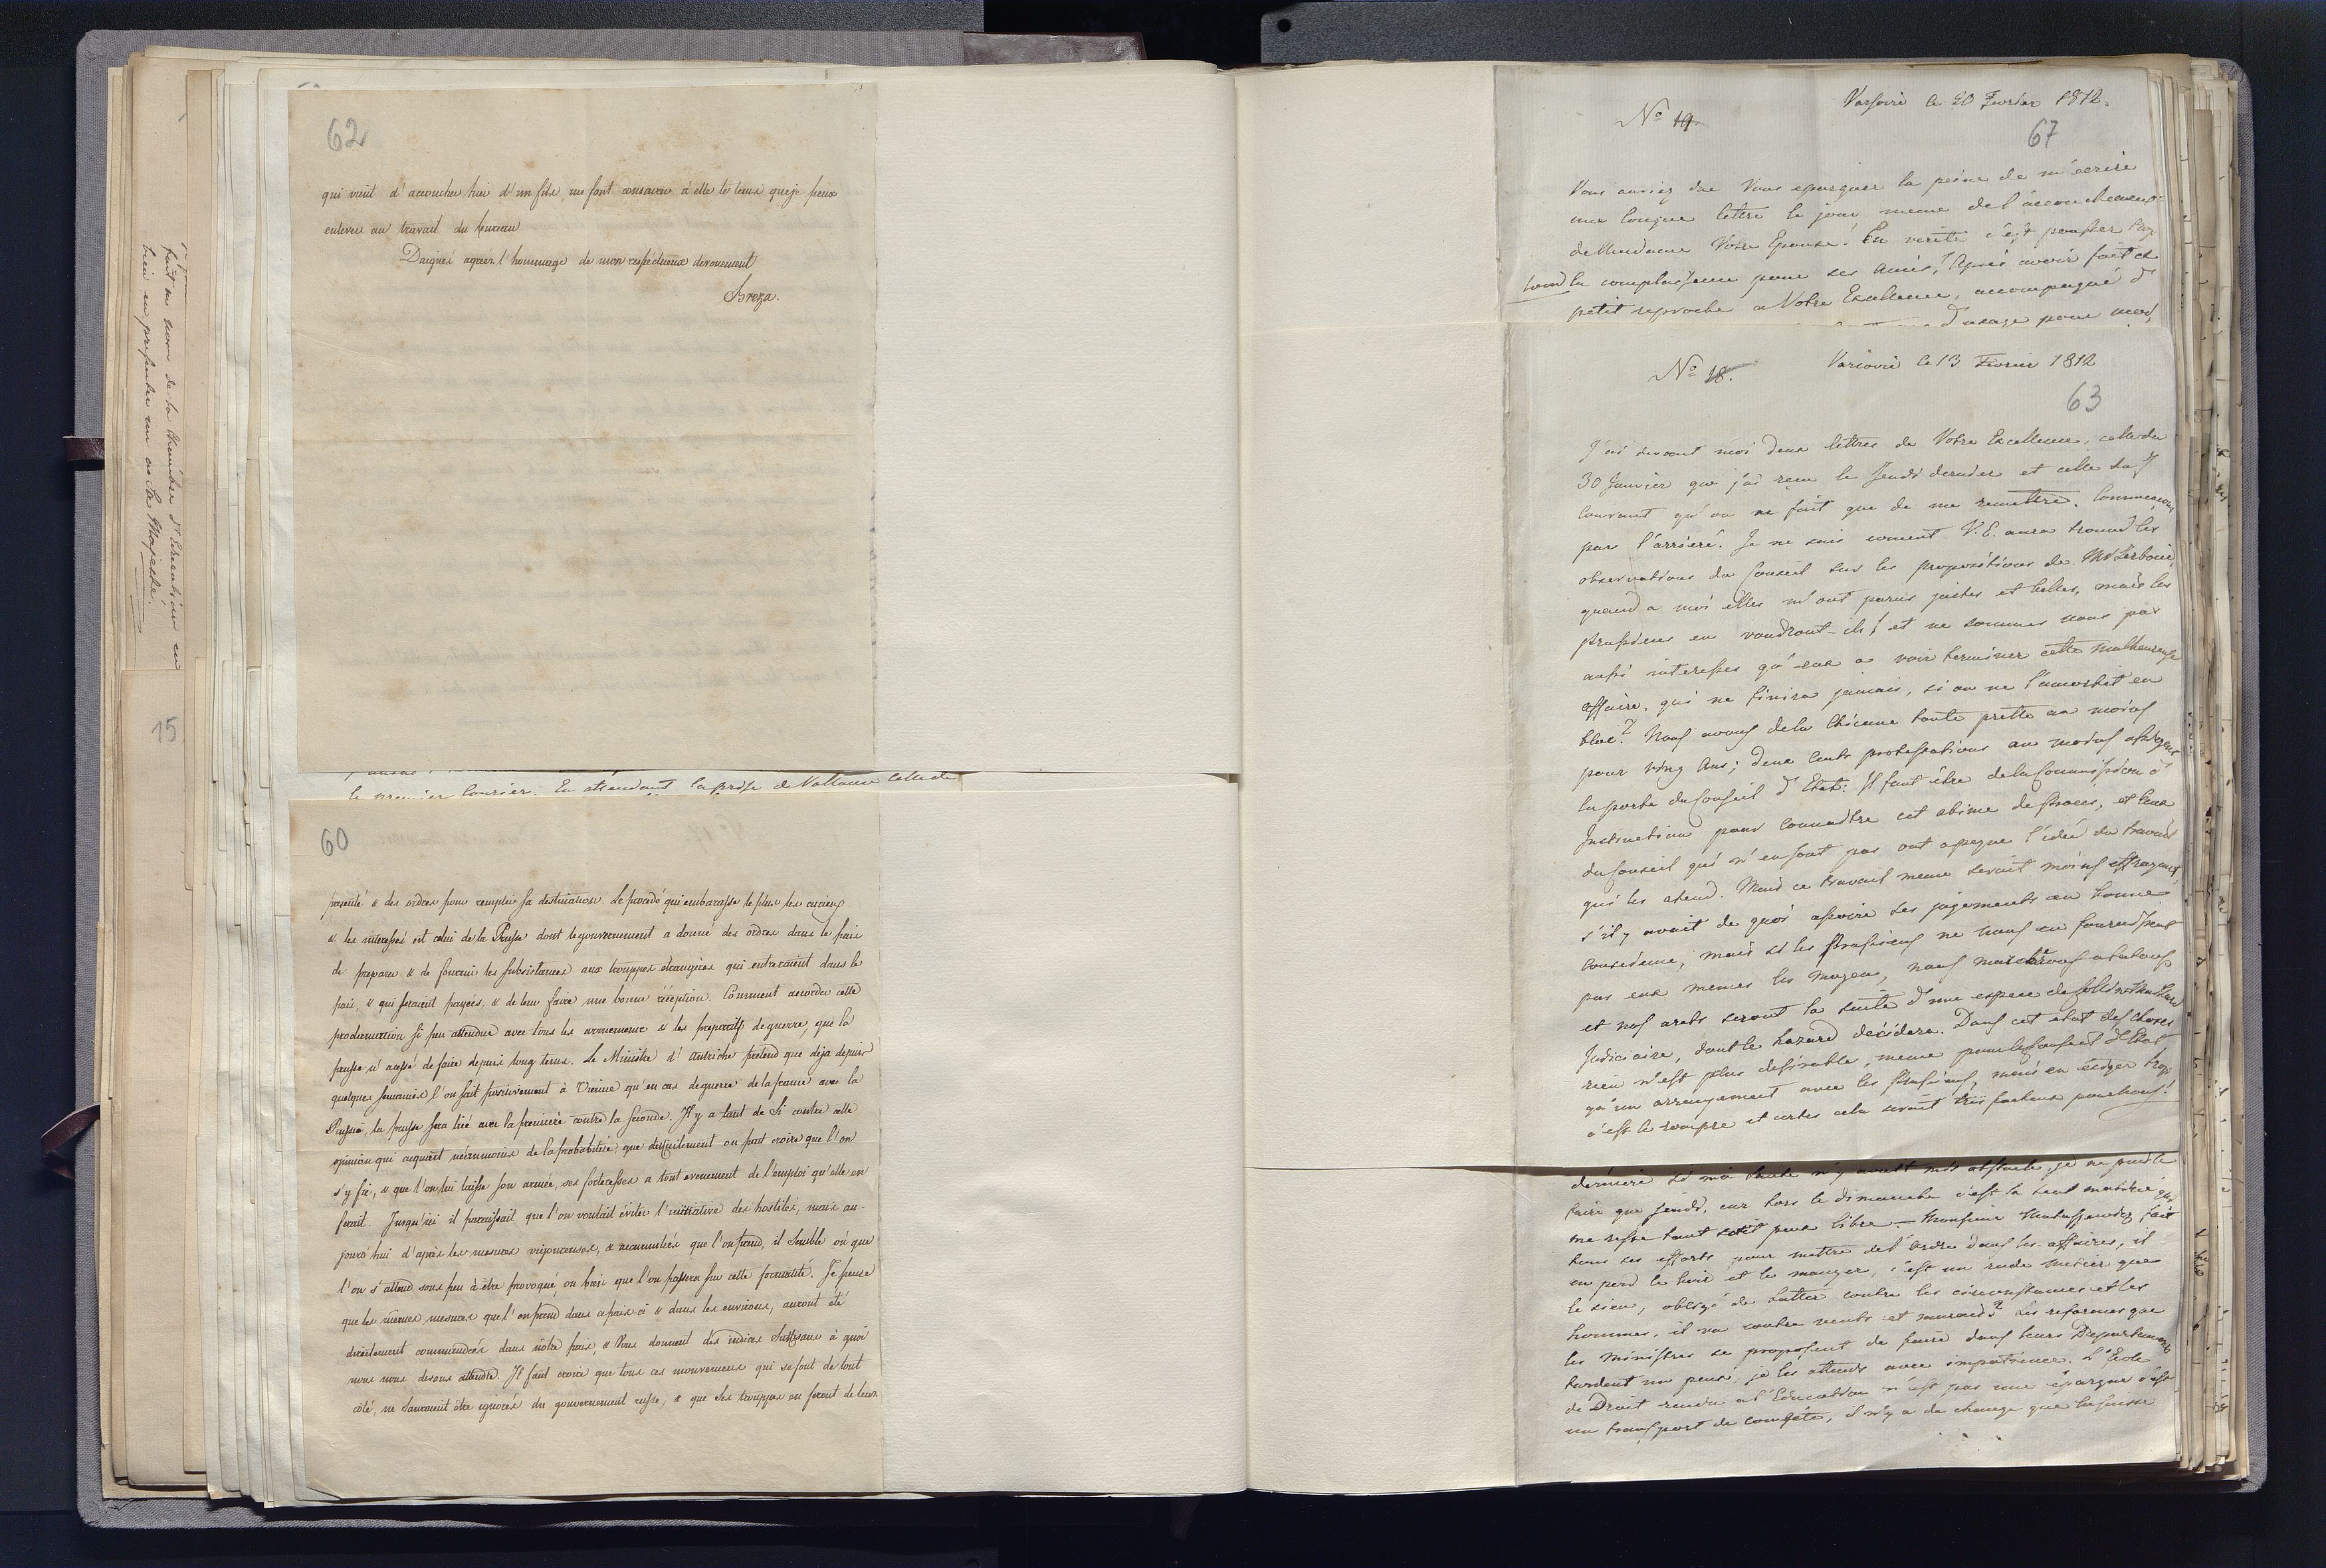 fait au nom de la Chambre d'Education en
bien en presenter un au Sa Majesté.
15
62
qui vient d'accoucher hier d'un fils me font consacrer à elle le tems que je peux
enlever au travail du bureau
Daignez agréer l'hommage de mon respectueux devouement
Breza.
le premier Courier. En attendant la prise de Valence celle de
60
presenté & des ordres pour remplir sa destination. Le procedé qui embarasse le plus les curieux
& les interessés est celui de la Prusse dont le gouvernement a donné des ordres dans le païs
de preparer & de fournir les subsistances aux trouppes etrangères qui entreraient dans le
païs, & qui seraient payées, & de leur faire une bonne réception. Comment accorder cette
proclamation si peu attendue avec tous les armemens & les preparatifs de guerre, que la
prusse n'a cessé de faire depuis long tems. Le Ministre d'Autriche prétend que deja depuis
quelques semaines l'on sait positivement à Vienne qu'en cas de guerre de la france avec la
Russie, la prusse sera lié avec la première contre la seconde. Il y a tant de Si contre cette
opinion qui acquiert néanmoins de la probabilité, que difficilement on peut croire que l'on
s'y fie, & que l'on lui laisse son armée, ses forteresses a tout evenement de l'emploi qu'elle en
ferait. Jusqu'ici il paraissait que l'on voulait éviter l'initiative des hostilés, mais au-
jourd'hui d'après les mesures vigoureuses, & accumulées que l'on prend, il semble où que
l'on s'attend sous peu à être provoqué, ou bien que l'on passera sur cette formalité. Je pense
que les mêmes mesures que l'on prend dans ce païs-ci & dans les environs, auront été
directement commandées dans nôtre païs, & Vous donnent des indices suffisans à quoi
nous nous devons attendre. Il faut croire que tous ces mouvemens qui se font de tout
côté, ne sauroient être ignorés du gouvernement russe, & que ses trouppes en feront de leur
No 19
Varsovie le 20 Fevrier 1812.
67
Vous auriez due Vous epargner la peine de m'écrire
une longue lettre le jour meme de l'accouchement
de Madame Votre Epouse! En verité c'est pousser trop
loin la complaisance pour ses Amis! Après avoir fait ce
petit reproche a Votre Excellence, accompagné d
d'usage pour mad,
No 18.
Varsovie le 13 Fevrier 1812
63
J'ai devant moi deux lettres de Votre Excellence, celle du
30 Janvier que j'ai reçu le Jeudi dernier et celle du 7
Courant qu'on ne fait que de me remettre. Commençons
par l'arrieré. Je ne sais comment V.E. aura trouvé les
observations du Conseil sur les propositions de Mr Serboni,
quand a moi elles m'ont parus justes et belles, mais les
prussiens en voudront-ils? et ne sommes nous pas
aussi interesses qu'eux a voir terminer cette malheureuse
affaire, qui ne finira jamais, si on ne l'amortit en
bloc? Nous avons de la Chicane toute prette au moins
pour vingt Ans; deux Cents protestations au moins assiegent
la porte du Conseil d'Etat: Il faut être de la Commission d'
Instruction pour Connaître cet abime de procès, et ceux
du Conseil qui n'en sont pas ont a peine l'idée du travail
qui les attend. Mais ce travail meme serait moins effrayant
s'il y avait de quoi asseoire ses jugements en bonne
Conscience, mais si les prussiens ne nous en fournissent
pas eux memes les moyens, nous marcherons a tatons
et nos arets seront la suite d'une espece de
Judiciaire, dont le hazard décidera. Dans cet etat des choses
rien n'est plus desirable, meme pour le Conseil d'Etat
qu'un arrangement avec les prussiens, mais en exiger trop
c'est le rompre et certes cela serait très facheux pour nous!
derniere si ma santé n'y avait mis obstacle, je ne puis le
faire que Jeudi, car hors le dimanche c'est la seul matinée qui
me reste tant soit peu libre — Monsieur Matuszewicz fait
tous ses efforts pour mettre de l'Ordre dans les affaires, il
en perd le boir et le manger, c'est un rude metier que
le sien, obligé de lutter contre les circonstances et les
hommes, il va contre vents et marées? Les reformes que
les Ministres se proposent de faire dans leurs Departements
tardent un peu, je les attends avec impatience. L'Ecole
de Droit rendu a l'Education n'est pas une épargne c'est
un transport de compte, il n'y a de change que la caisse